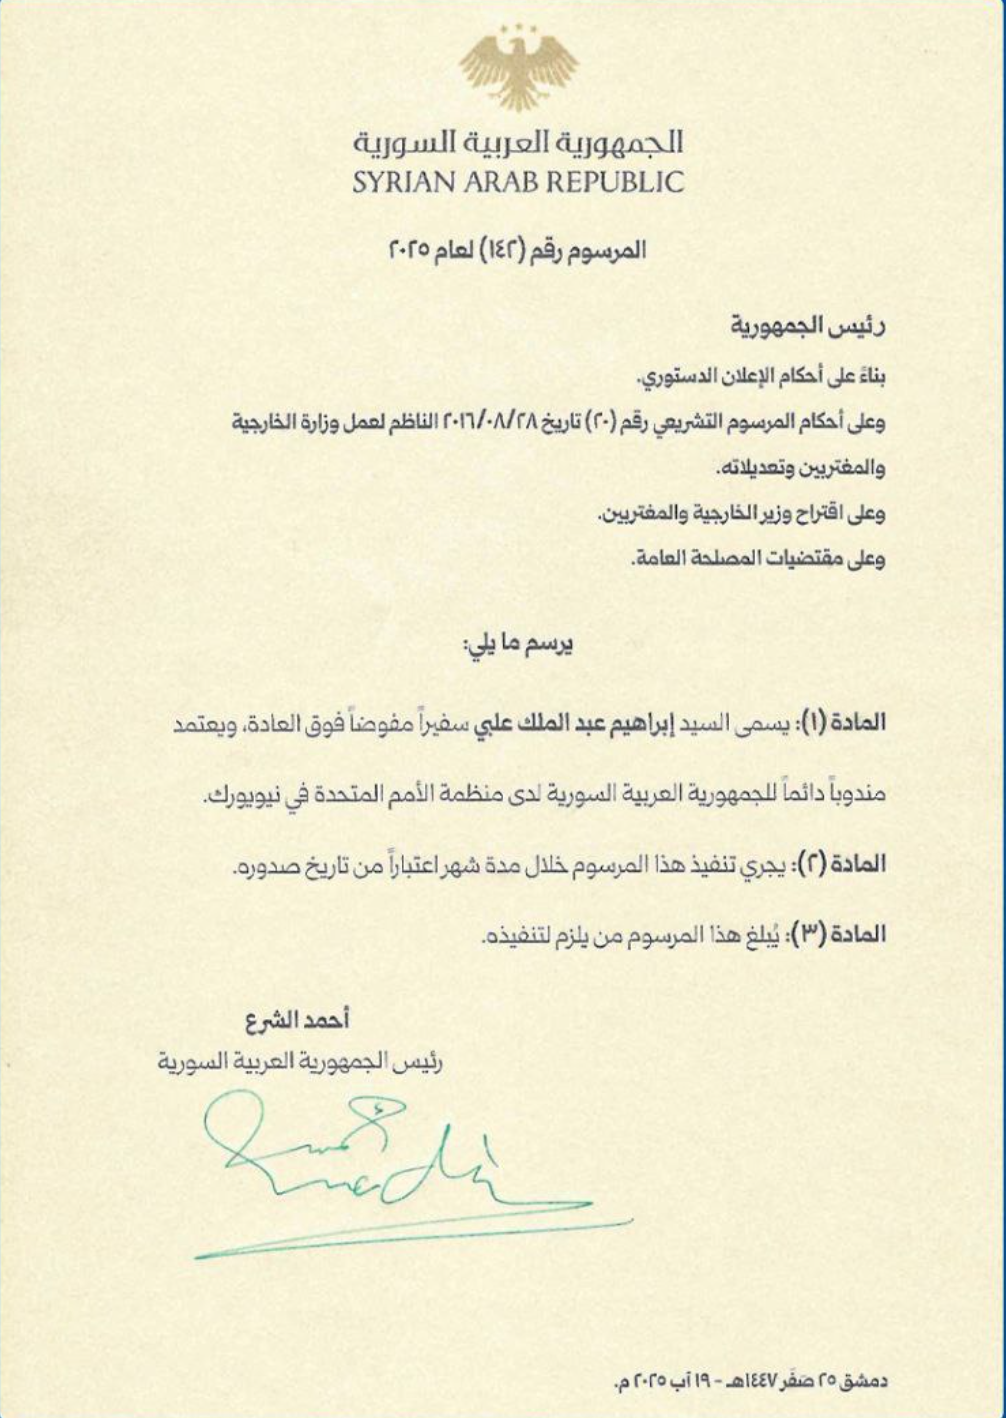 الجمهورية العربية السورية
SYRIAN ARAB REPUBLIC
المرسوم رقم (١٤٢) لعام ٢٠٢٥
رئيس الجمهورية
بناءً على أحكام الإعلان الدستوري.
وعلى أحكام المرسوم التشريعي رقم (٢٠) تاريخ ٢٠١٦/٠٨/٢٨ الناظم لعمل وزارة الخارجية
والمغتربين وتعديلاته.
وعلى اقتراح وزير الخارجية والمغتربين.
وعلى مقتضيات المصلحة العامة.
يرسم ما يلي:
المادة (١): يسمى السيد إبراهيم عبد الملك علبي سفيراً مفوضاً فوق العادة، ويعتمد
مندوباً دائماً للجمهورية العربية السورية لدى منظمة الأمم المتحدة في نيويورك.
المادة (٢): يجري تنفيذ هذا المرسوم خلال مدة شهر اعتباراً من تاريخ صدوره.
المادة (٣): يُبلغ هذا المرسوم من يلزم لتنفيذه.
أحمد الشرع
رئيس الجمهورية العربية السورية
دمشق ٢٥ صَفَر ١٤٤٧هـ - ١٩ آب ٢٠٢٥ م.